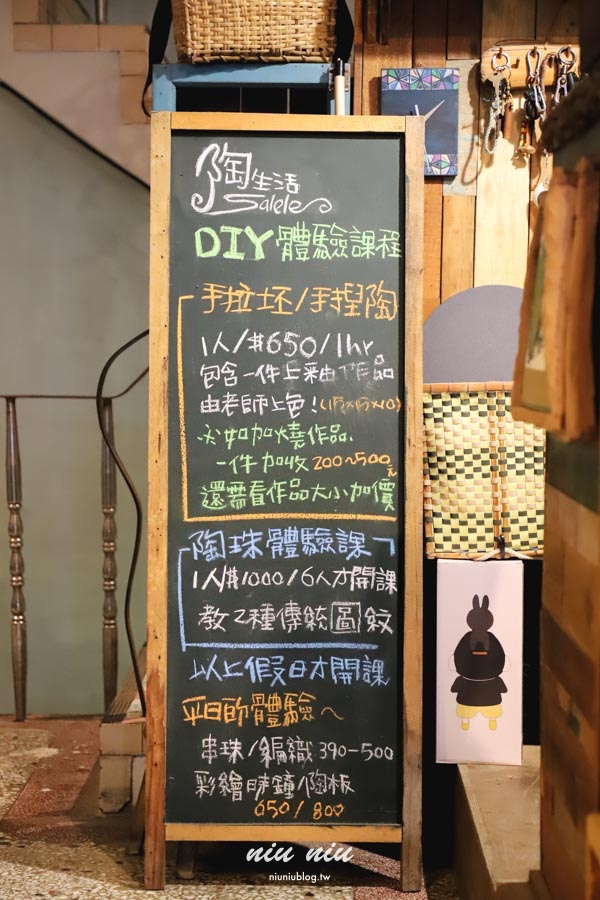 陶生活
Salele
DIY 體驗課程
手拉坯/手捏陶
1人/$650/1hr
包含一件上釉作品
由老師上色！(15×15×10)
※如加燒作品
一件加收200~500元
還需看作品大小加價
陶珠體驗課
1人$1000/6人才開課
教2種傳統圖紋
以上假日才開課
平日的體驗~
串珠/編織 390-500
彩繪時鐘/陶板
650/800
niu niu
niuniublog.tw